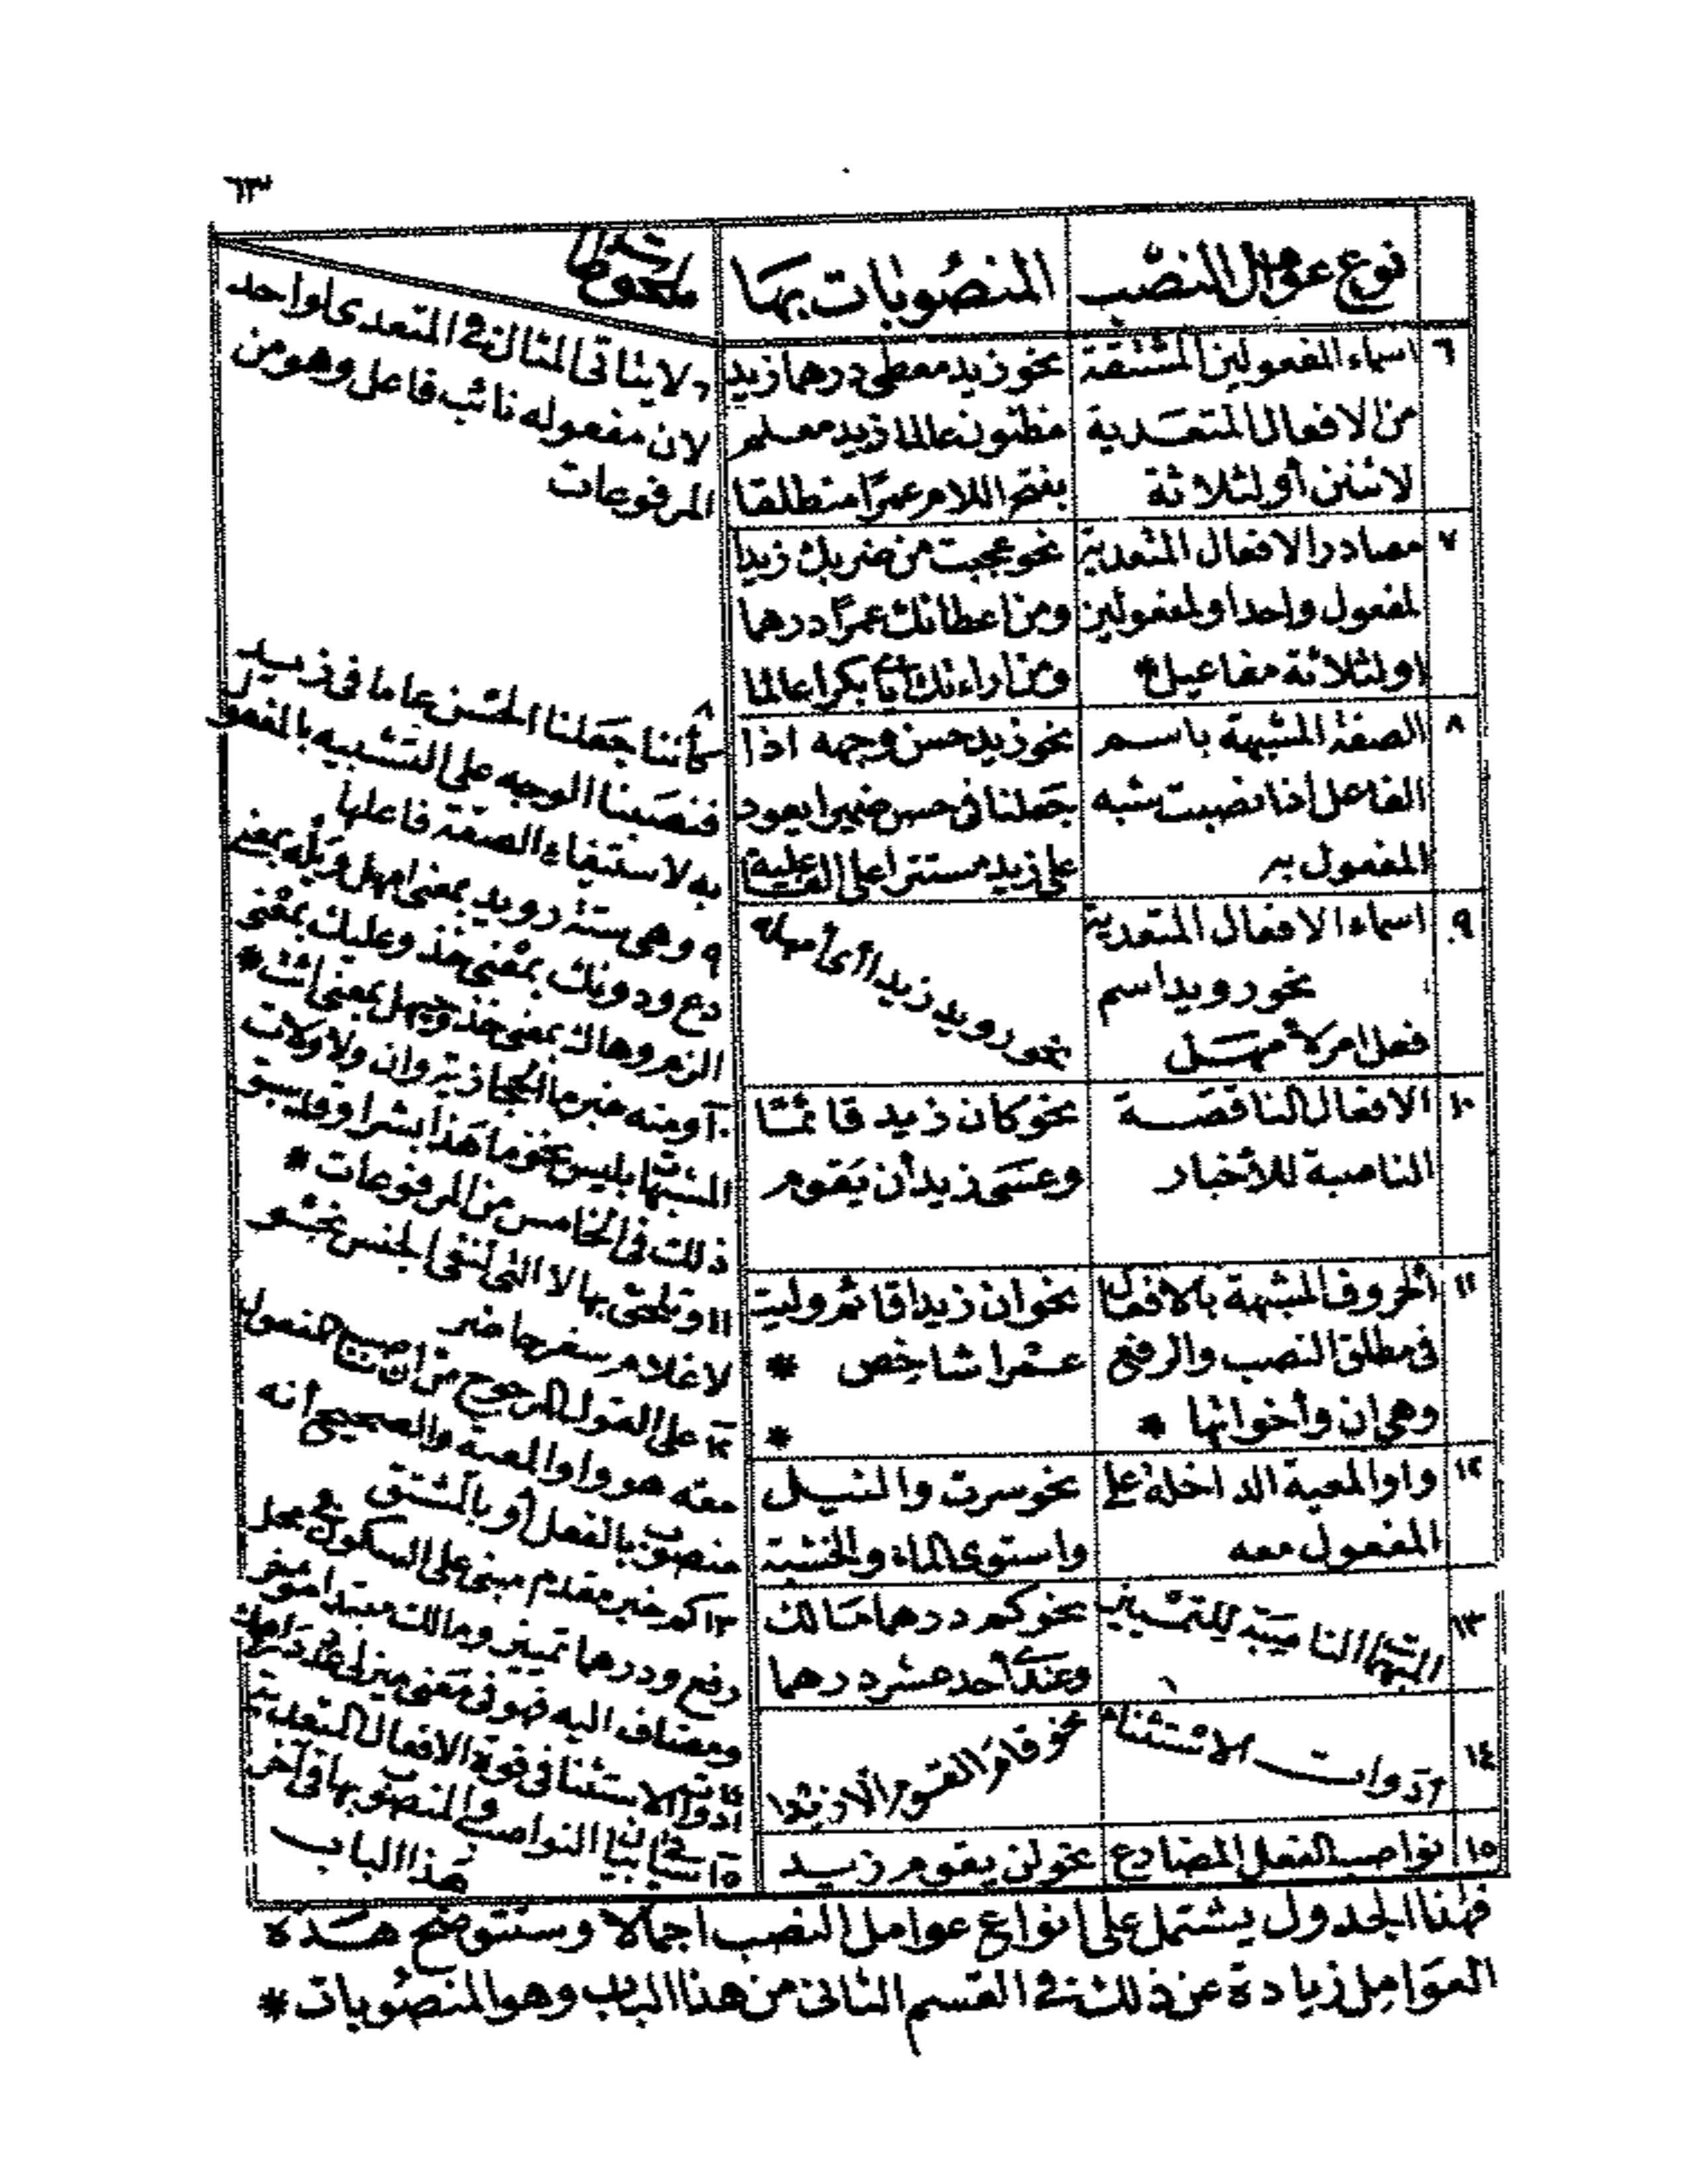 ٦٣
نوع عوامل النصب
المنصوبات بها
ملحوظات
٦
اسماء المفعولين المشتقة
من الافعال المتعدية
لاثنين أو لثلاثة
نحو زيد معطى درهما زيد
مظنون عالما زيد معلم
بفتح اللام عمرًا منطلقا
ولا يتأتى المثال في المتعدى لواحد
لان مفعوله نائب فاعل وهو من
المرفوعات
٧
مصادر الافعال المتعدية
لمفعول واحد او لمفعولين
او لثلاثة مفاعيل *
نحو عجبت من ضربك زيدا
ومن اعطائك عمرًا درهما
ومن اراءتك بكرا عالما
٨
الصفة المشبهة باسم
الفاعل اذا نصبت شبه
المفعول به
نحو زيد حسن وجهه اذا
جعلنا في حسن ضميرا يعود
على زيد مستترا على الفاعلية
٨
كأننا جعلنا الحسن عاما في زيد
فنصبنا الوجه على التشبيه بالمفعول
به لاستيفاء الصفة فاعلها
٩
اسماء الافعال المتعدية
نحو رويد اسم
فعل امر كأمهل
نحو رويد زيدا أى أمهله
٩ وهى ستة رويد بمعنى امهل وبله بمعنى
دع ودونك بمعنى خذ وعليك بمعنى
الزم وهاك بمعنى خذ وحيهل بمعنى ائت *
١٠
الافعال الناقصة
الناصبة للأخبار
نحو كان زيد قائمًا
وعسى زيد أن يقوم
١٠ ومنه خبر ما الحجازية وان ولا ولات
المشبهات بليس نحو ما هذا بشرا وقد سبق
ذلك في الخامس من المرفوعات *
١١
الحروف المشبهة بالافعال
في مطلق النصب والرفع
وهى ان وأخواتها *
نحو ان زيدا قائم وليت
عمرا شاخص *
*
١١ وتلحق بها لا التى لنفى الجنس نحو
لا غلام سفر حاضر
١٢
واو المعية الداخلة على
المفعول معه
نحو سرت والنيل
واستوى الماء والخشبة
١٢ على القول المرجوح من ان ناصب المفعول
معه هو واو المعية والصحيح أنه
منصوب بالفعل أو بالمشتق
١٣
المبهمات الناصبة للتمييز
نحو كم درهما مالك
وعندى أحد عشر درهما
١٣ كم خبر مقدم مبنى على السكون في محل
رفع ودرهما تمييز ومالك مبتدا مؤخر
ومضاف اليه فهو في معنى
١٤
أدوات الاستثناء
نحو قام القوم الا زيدا
١٤ أدوات الاستثنا في قوة الافعال المتعدية
١٥
نواصب الفعل المضارع
نحو لن يقوم زيد
١٥ سيأتى بيان النواصب والمنصوب بها في آخر
هذا الباب
فهذا الجدول يشتمل على أنواع عوامل النصب اجمالا وستتوضح هذه
العوامل زيادة عن ذلك في القسم الثانى من هذا الباب وهو المنصوبات *